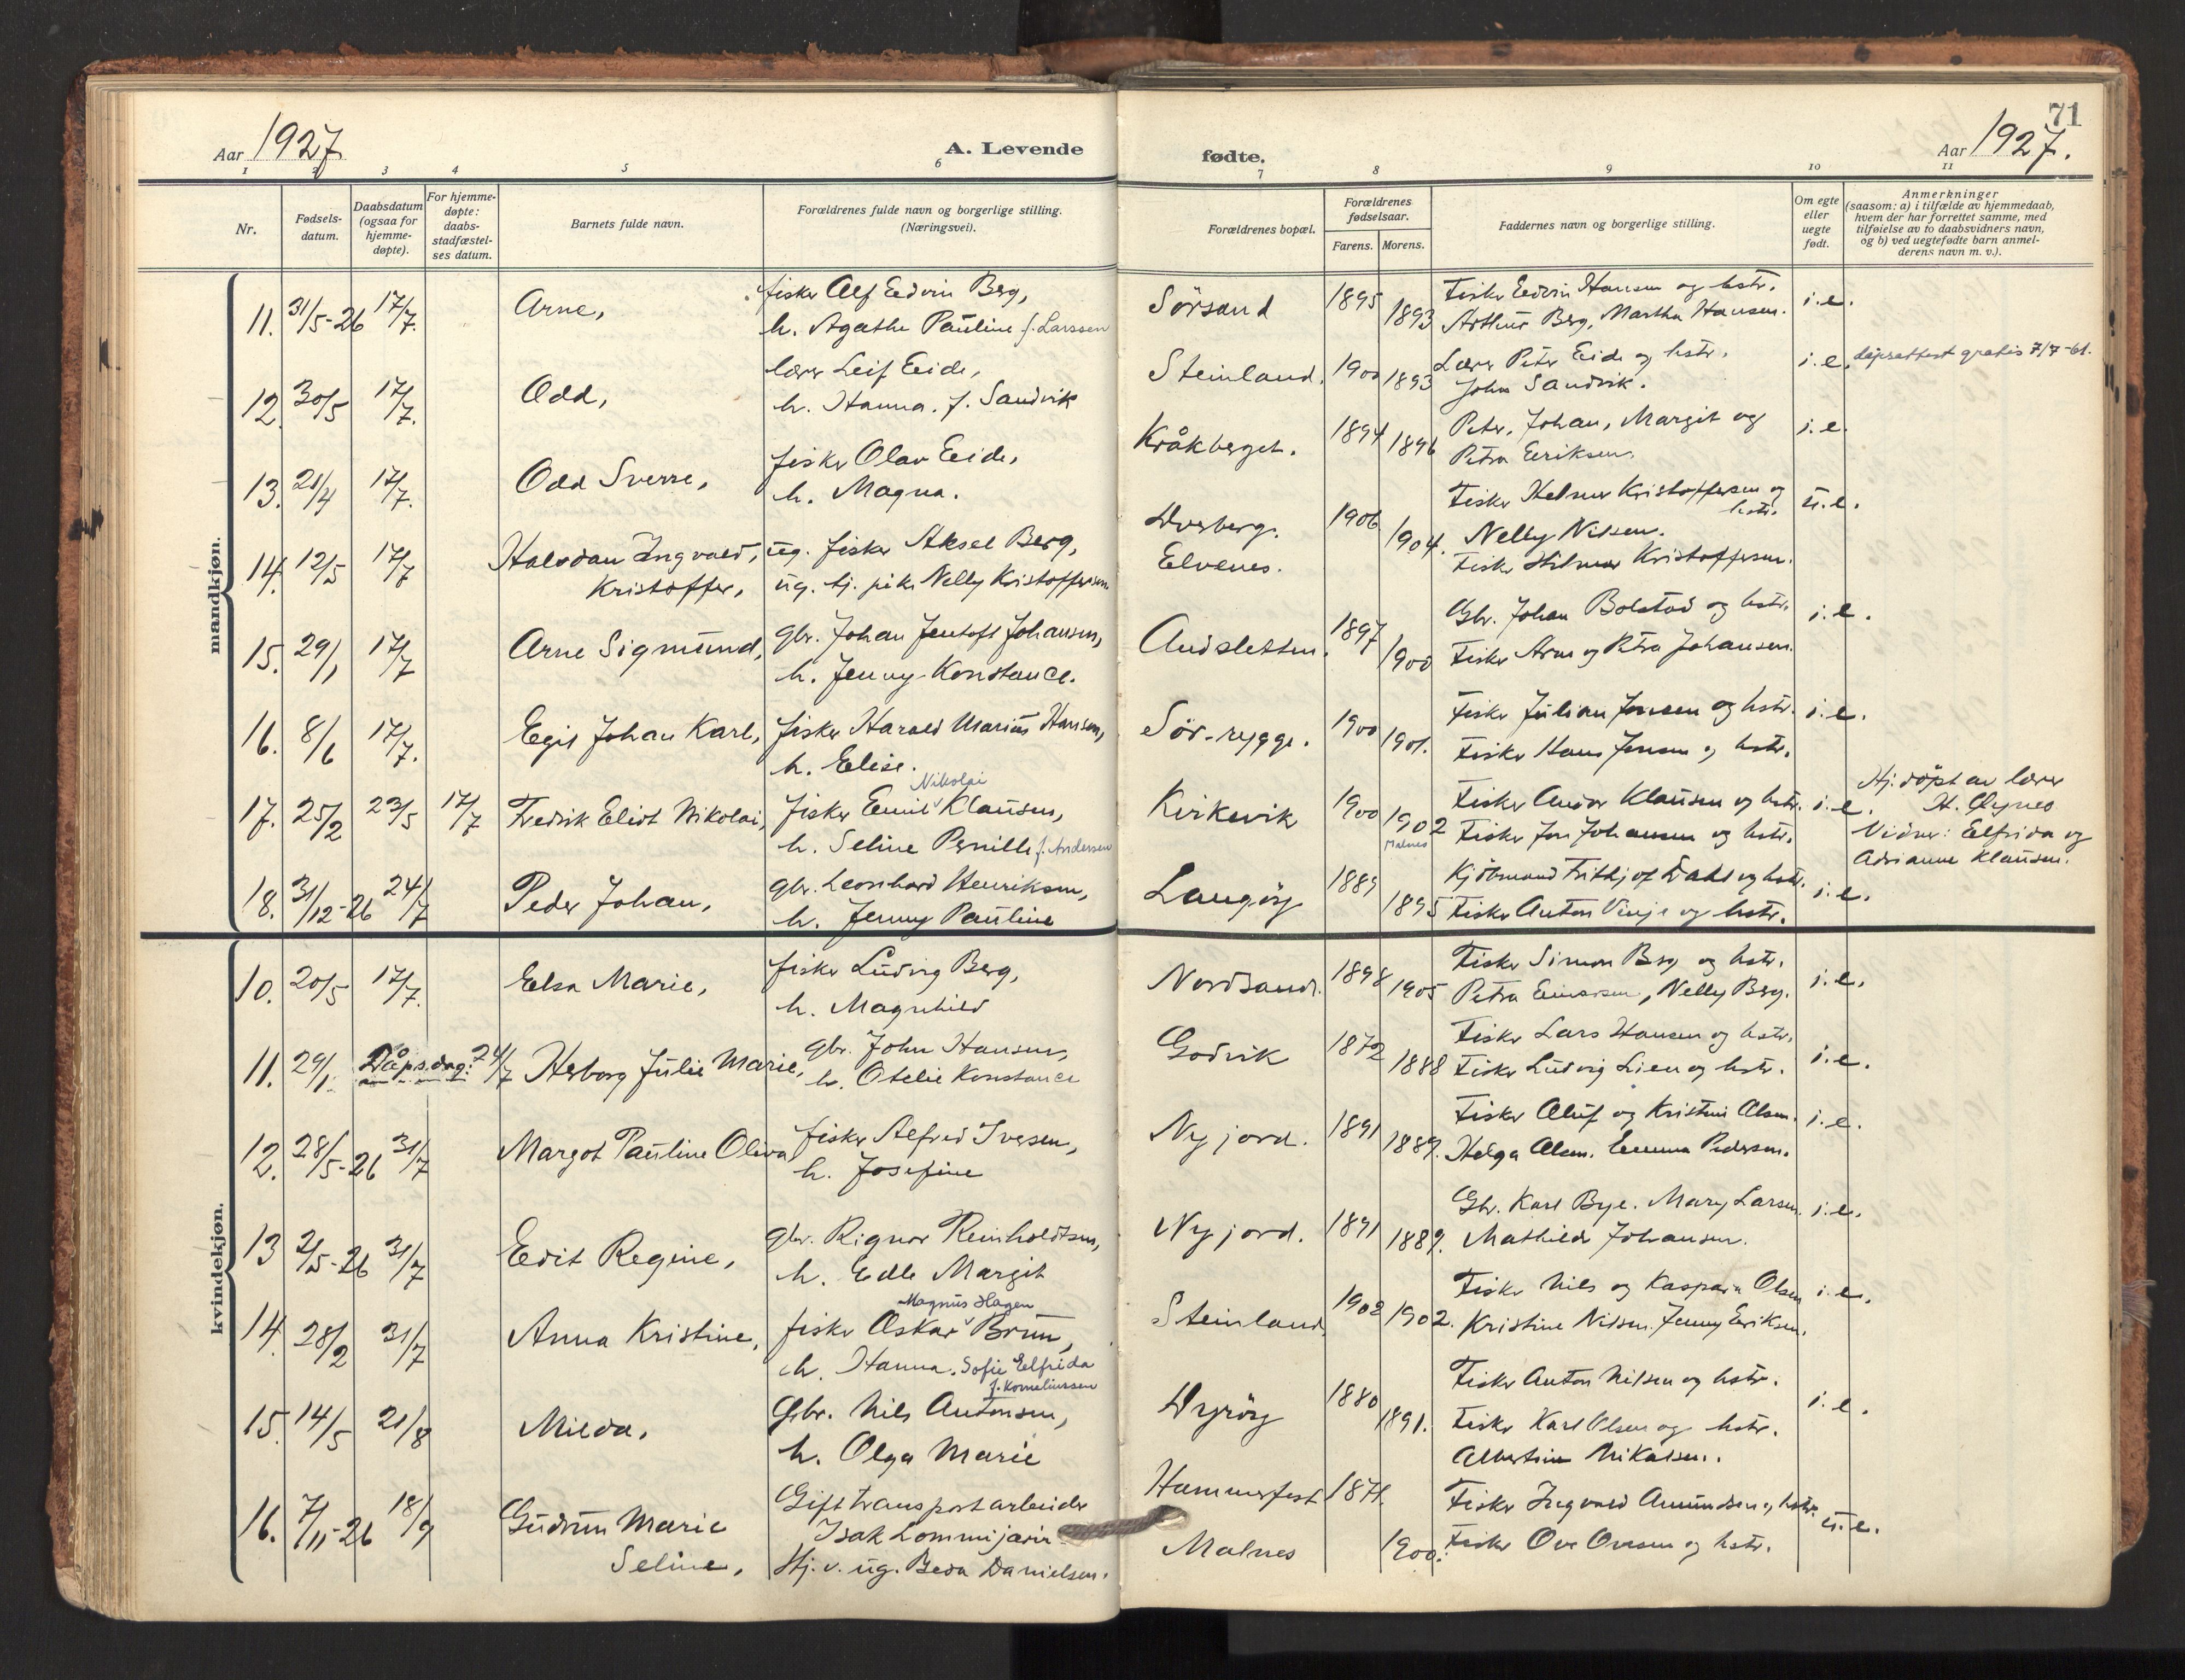 71
Aar 1927
A. Levende
fødte.
Aar 1927.
1 2 3 4 5 6 7 8 9 10 11
Nr.
Fødsels-
datum.
Daabsdatum
(ogsaa for
hjemme-
døpte).
For hjemme-
døpte:
daabs-
stadfæstel-
ses datum.
Barnets fulde navn.
Forældrenes fulde navn og borgerlige stilling.
(Næringsvei).
Forældrenes bopæl.
Forældrenes
fødselsaar.
Farens. Morens.
Faddernes navn og borgerlige stilling.
Om egte
eller
uegte
født.
Anmerkninger
(saasom: a) i tilfælde av hjemmedaab,
hvem der har forrettet samme, med
tilføielse av to daabsvidners navn,
og b) ved uegtefødte barn anmel-
derens navn m. v.).
mandkjøn.
11. 31/5-26 17/7. Arne, fisker Alf Edvin Berg,
h. Agathe Pauline f. Larssen
Sørsand 1895 1893
Fisker Edvin Hansen og hstr.
Arthur Berg, Martha Hansen.
i.e.
12. 30/5 17/7. Odd, lærer Leif Eide,
h. Hanna. f. Sandvik
Steinland. 1900 1893
Lærer Peter Eide og hstr.
John Sandvik.
i.e. dåpsattest gratis 7/7-61.
13. 21/4 17/7. Odd Sverre, fisker Olav Eide,
h. Magna.
Kråkberget. 1894 1896
Peter, Johan, Margit og
Petra Eriksen.
i.e.
14. 12/5 17/7 Halvdan Ingvald, ug. fisker Aksel Berg,
Kristoffer, ug. hj. pike Nelly Kristoffersen
Dverberg.
Elvenes.
1906 1904.
Fisker Helmer Kristoffersen og
hstr.
Nelly Nilsen.
Fisker Hilmar Kristoffersen.
u.e.
15. 29/1 17/7 Arne Sigmund, gbr. Johan Jentoft Johansen,
h. Jenny Konstance.
Åndsletten. 1897 1900
Gbr. Johan Bolstad og hstr.
Fisker Arne og Petra Johansen.
i.e.
16. 8/6 17/7. Egil Johan Karl, fisker Harald Marius Hansen,
h. Elise.
Sør-rygge. 1900 1901.
Fisker Julian Jensen og hstr.
Fisker Hans Jensen og hstr.
i.e.
17. 25/2 23/5 17/7 Fredrik Eliot Nikolai, fisker Emil Nikolai Klausen,
h. Seline Pernille f. Andersen
Kirkevik 1900 1902
Malnes
Fisker Andor Klausen og hstr.
Fisker Jon Johansen og hstr.
i.e.
Hj. døpt av lærer
Vidner: Elfrida og
Adrianne Klausen.
18. 31/12-26 24/7 Peder Johan, gbr. Leonhard Henriksen,
h. Jenny Pauline
Langøy 1889 1895
Kjøbmand Fritjof Dahl og hstr.
Fisker Anton Vinje og hstr.
i.e.
kvindekjøn.
10. 20/5 17/7. Elsa Marie, fisker Ludvig Berg,
h. Magnhild
Nordsand. 1898 1905
Fisker Simon Berg og hstr.
Petra Einarsen, Nelly Berg.
i.e.
11. 29/1 Dåpsdag: 24/7 Herborg Julie Marie, gbr. John Hansen,
h. Otelie Konstance
Godvik 1872 1888
Fisker Lars Hansen og hstr.
Fisker Ludvig Lien og hstr.
i.e.
12. 28/5-26 31/7 Margot Pauline Oliva fisker Alfred Iversen,
h. Josefine
Nyjord. 1891 1889.
Fisker Oluf og Kristine Olsen.
Helga Olsen. Emma Pedersen.
i.e.
13 2/5-26 31/7 Edit Regine, gbr. Rignor Reinholdtsen,
h. Edle Margit
Nyjord. 1891 1889.
Gbr. Karl Bye. Mary Larsen.
Mathilde Johansen.
i.e.
14. 28/2 31/7 Anna Kristine, fisker Oskar Magnus Hagen Brun,
h. Hanna. Sofie Elfrida
f. Korneliussen
Steinland. 1902 1902.
Fisker Nils og Kaspara Olsen
Kristine Nilsen. Jenny Eriksen.
i.e.
15. 14/5 21/8 Milda, Gbr. Nils Antonsen,
h. Olga Marie
Dyrøy 1880 1891.
Fisker Anton Nilsen og hstr.
Fisker Karl Olsen og hstr.
Albertine Nikalsen.
i.e.
16. 7/11-26 18/9 Gudrun Marie Gift transportarbeider
Isak Lommijarvi
Seline, Hj. v. ug. Beda Danielsen.
Hammerfest 1871.
Malnes 1900.
Fisker Ingvald Amundsen og hstr.
Fisker Ove Ovesen og hstr.
u.e.